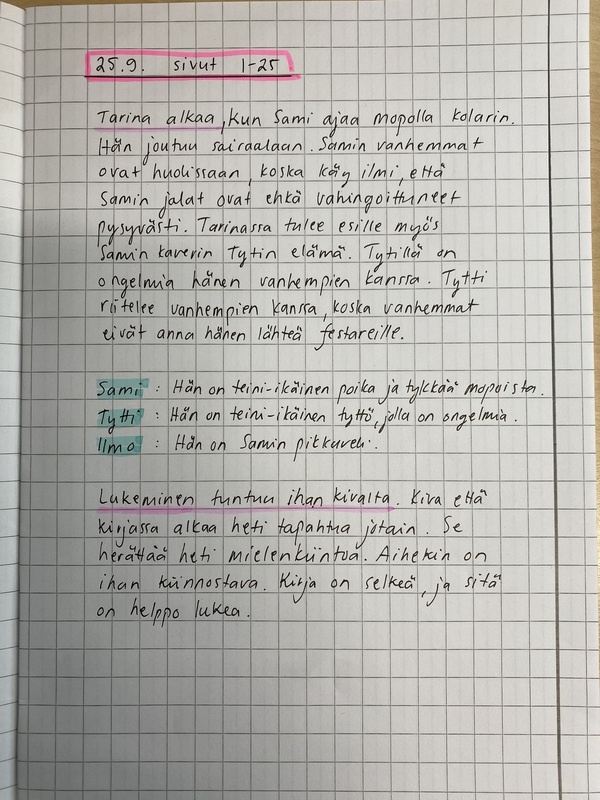 25.9. sivut 1-25
Tarina alkaa, kun Sami ajaa mopolla kolarin.
Hän joutuu sairaalaan. Samin vanhemmat
ovat huolissaan, koska käy ilmi, että
Samin jalat ovat ehkä vahingoittuneet
pysyvästi. Tarinassa tulee esille myös
Samin kaverin Tytin elämä. Tytillä on
ongelmia hänen vanhempien kanssa. Tytti
riitelee vanhempien kanssa, koska vanhemmat
eivät anna hänen lähteä festareille.
Sami : Hän on teini-ikäinen poika ja tykkää mopoista.
Tytti : Hän on teini-ikäinen tyttö, jolla on ongelmia.
Ilmo : Hän on Samin pikkuveli.
Lukeminen tuntuu ihan kivalta. Kiva että
kirjassa alkaa heti tapahtua jotain. Se
herättää heti mielenkiintoa. Aihekin on
ihan kiinnostava. Kirja on selkeä, ja sitä
on helppo lukea.